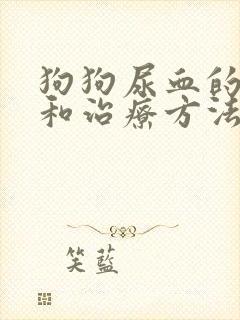 狗狗尿血的
和治疗方法
笑蓝